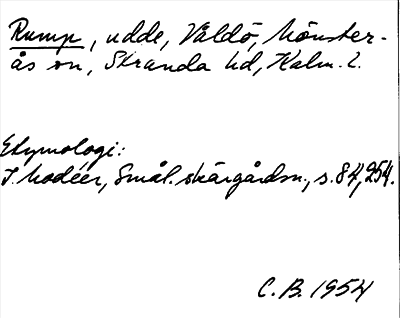 Rump, udde, Vållö, Mönster-
ås sn, Stranda hd, Kalm. l.
Etymologi:
I. Modéer, Smål. skärgårdsn., s. 84, 254.
C. B. 1954